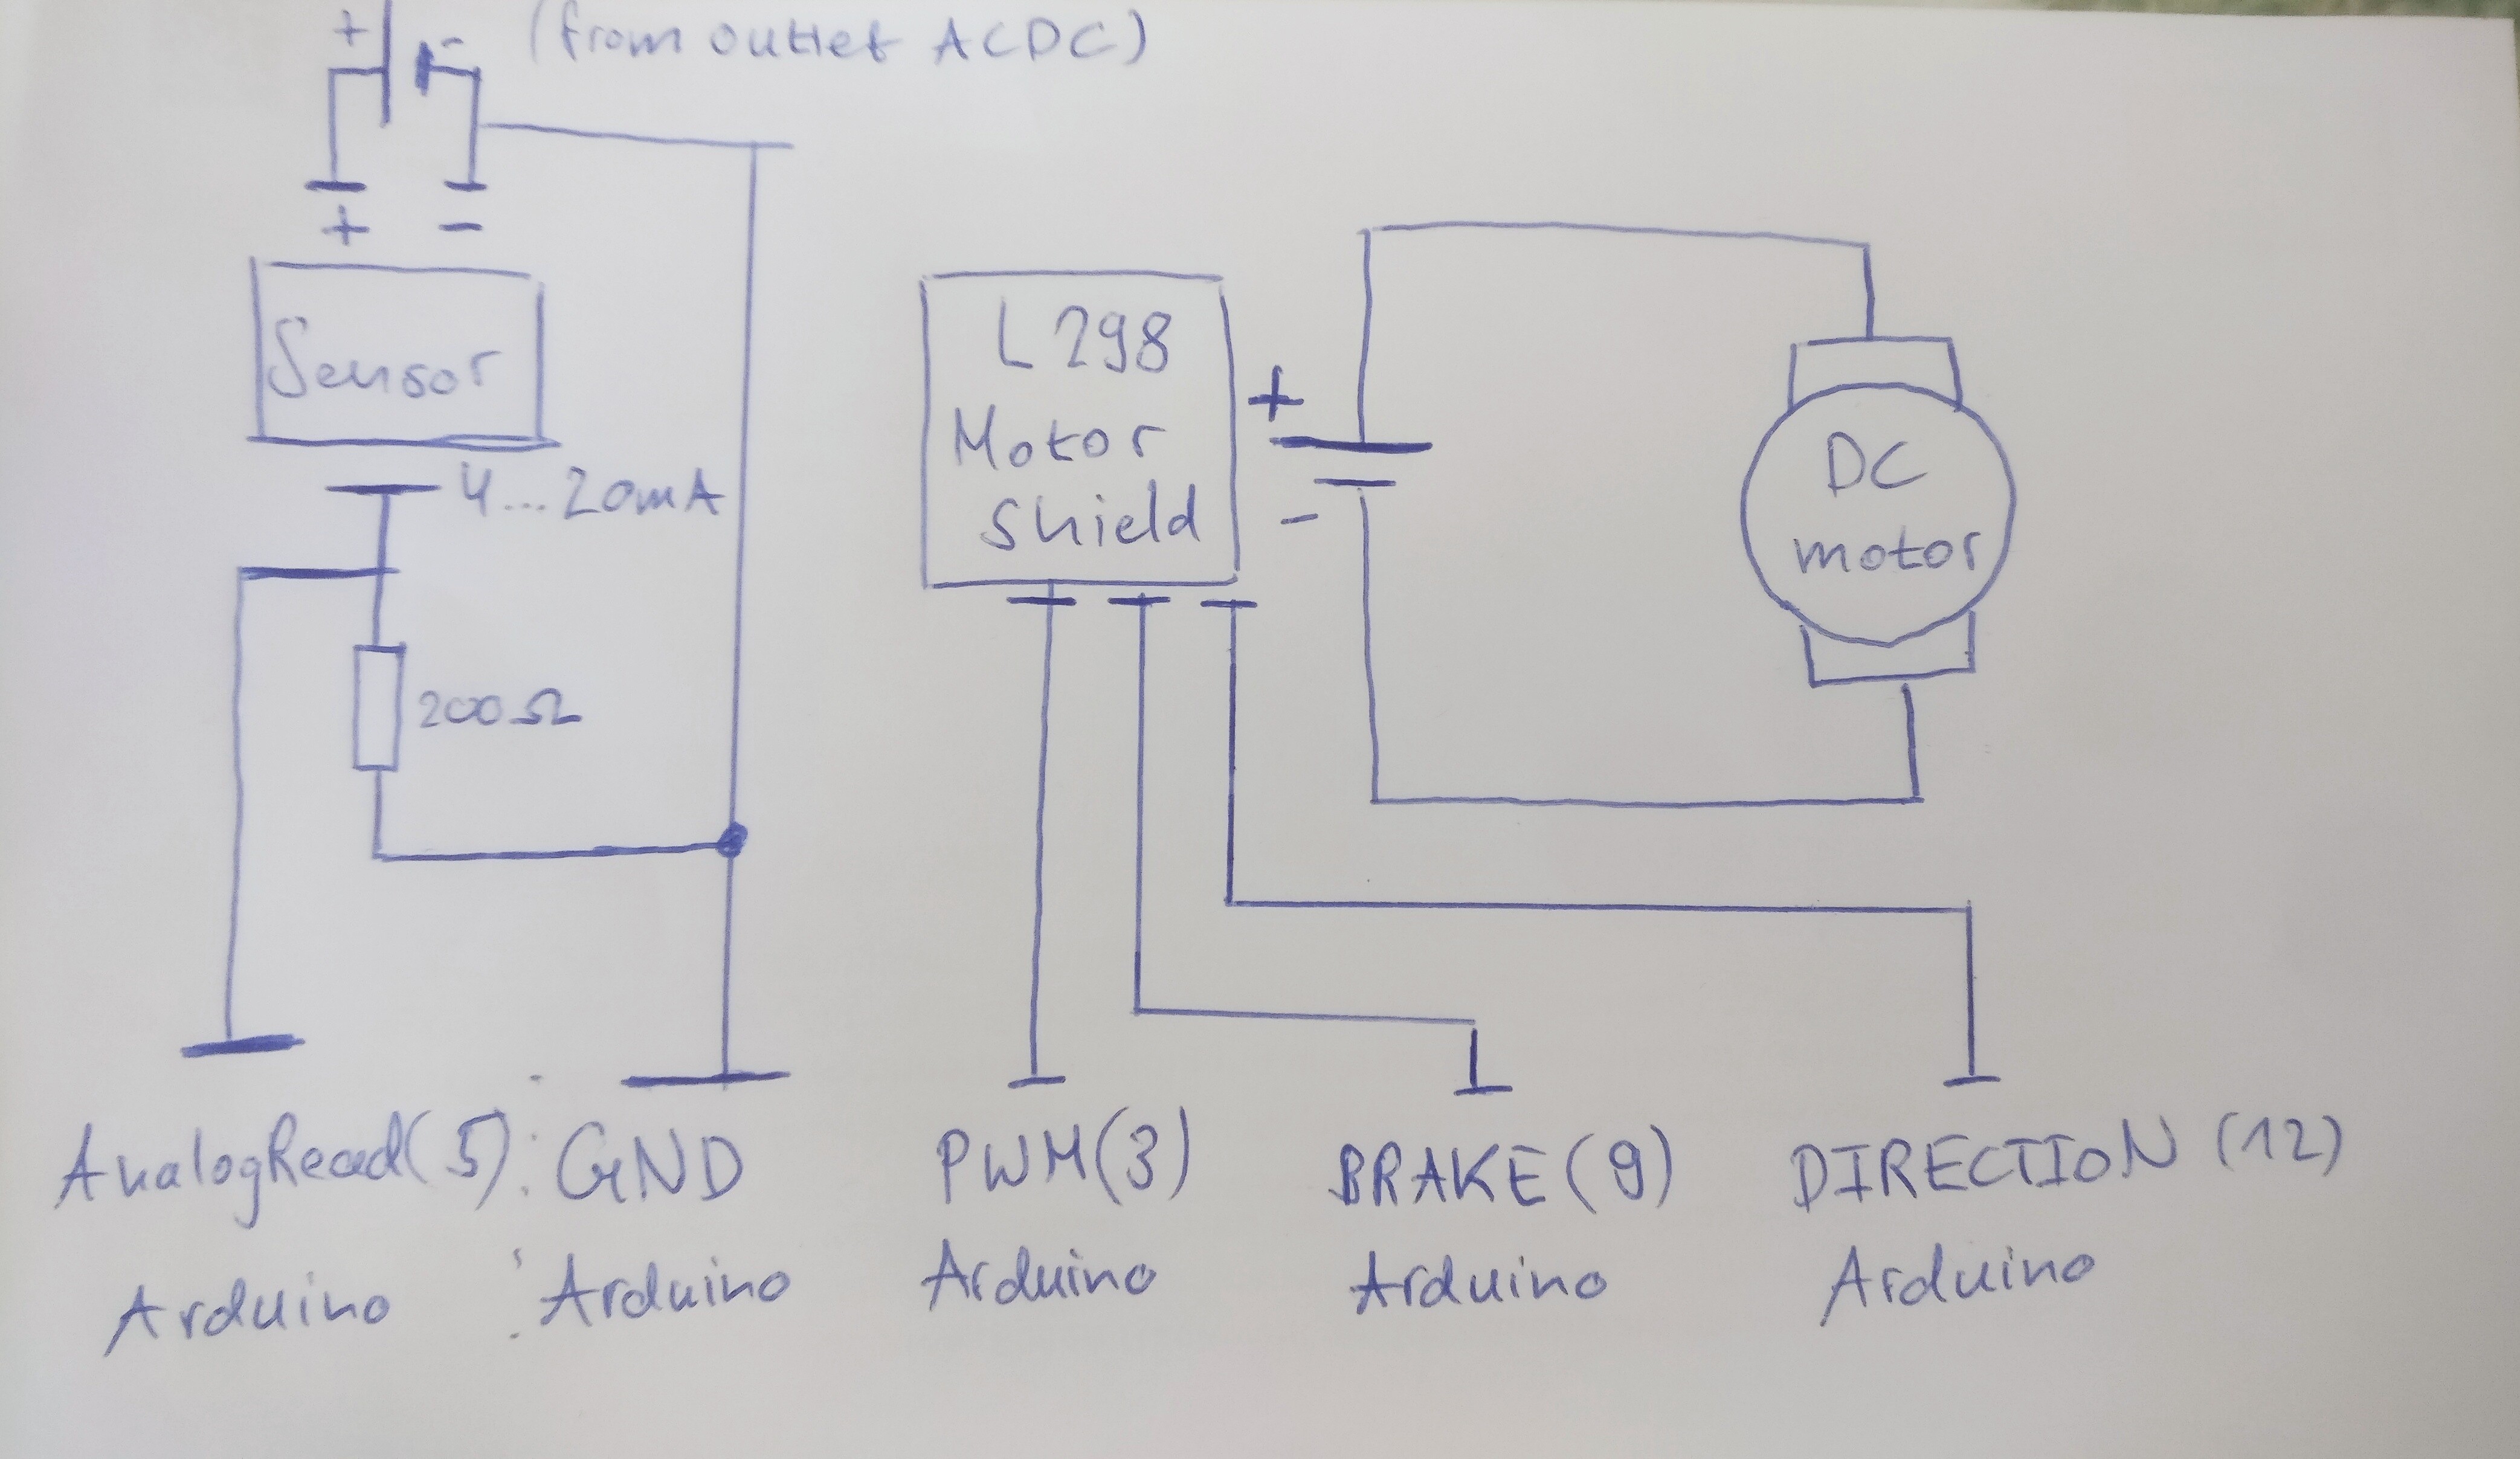 + - (from outlet ACDC)
+ -
Sensor
4...20mA
200Ω
L298
Motor
shield
+
-
DC
motor
AnalogRead(5)
Arduino
GND
Arduino
PWM(3)
Arduino
BRAKE(9)
Arduino
DIRECTION (12)
Arduino